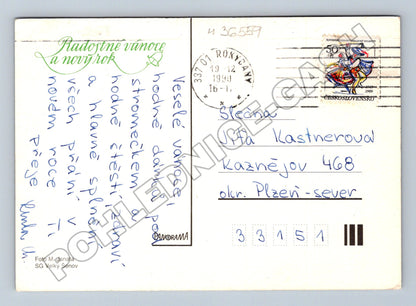 Radostné vánoce
a nový rok
Veselé vánoce,
hodně dárků pod
stromečkem a
hodně štěstí, zdraví
a hlavně splnění
všech přání v
novém roce Ti
přeje
Foto Mudenata
SG Velký Šenov
PANORAMA
M 3G5E9
337 01 ROKYCANY 1
19 12
ČESKOSLOVENSKO
Slečna
Víťa Kastnerová
Kaznějov 468
okr. Plzeň-sever
33151
POHLEDNICE-GASH